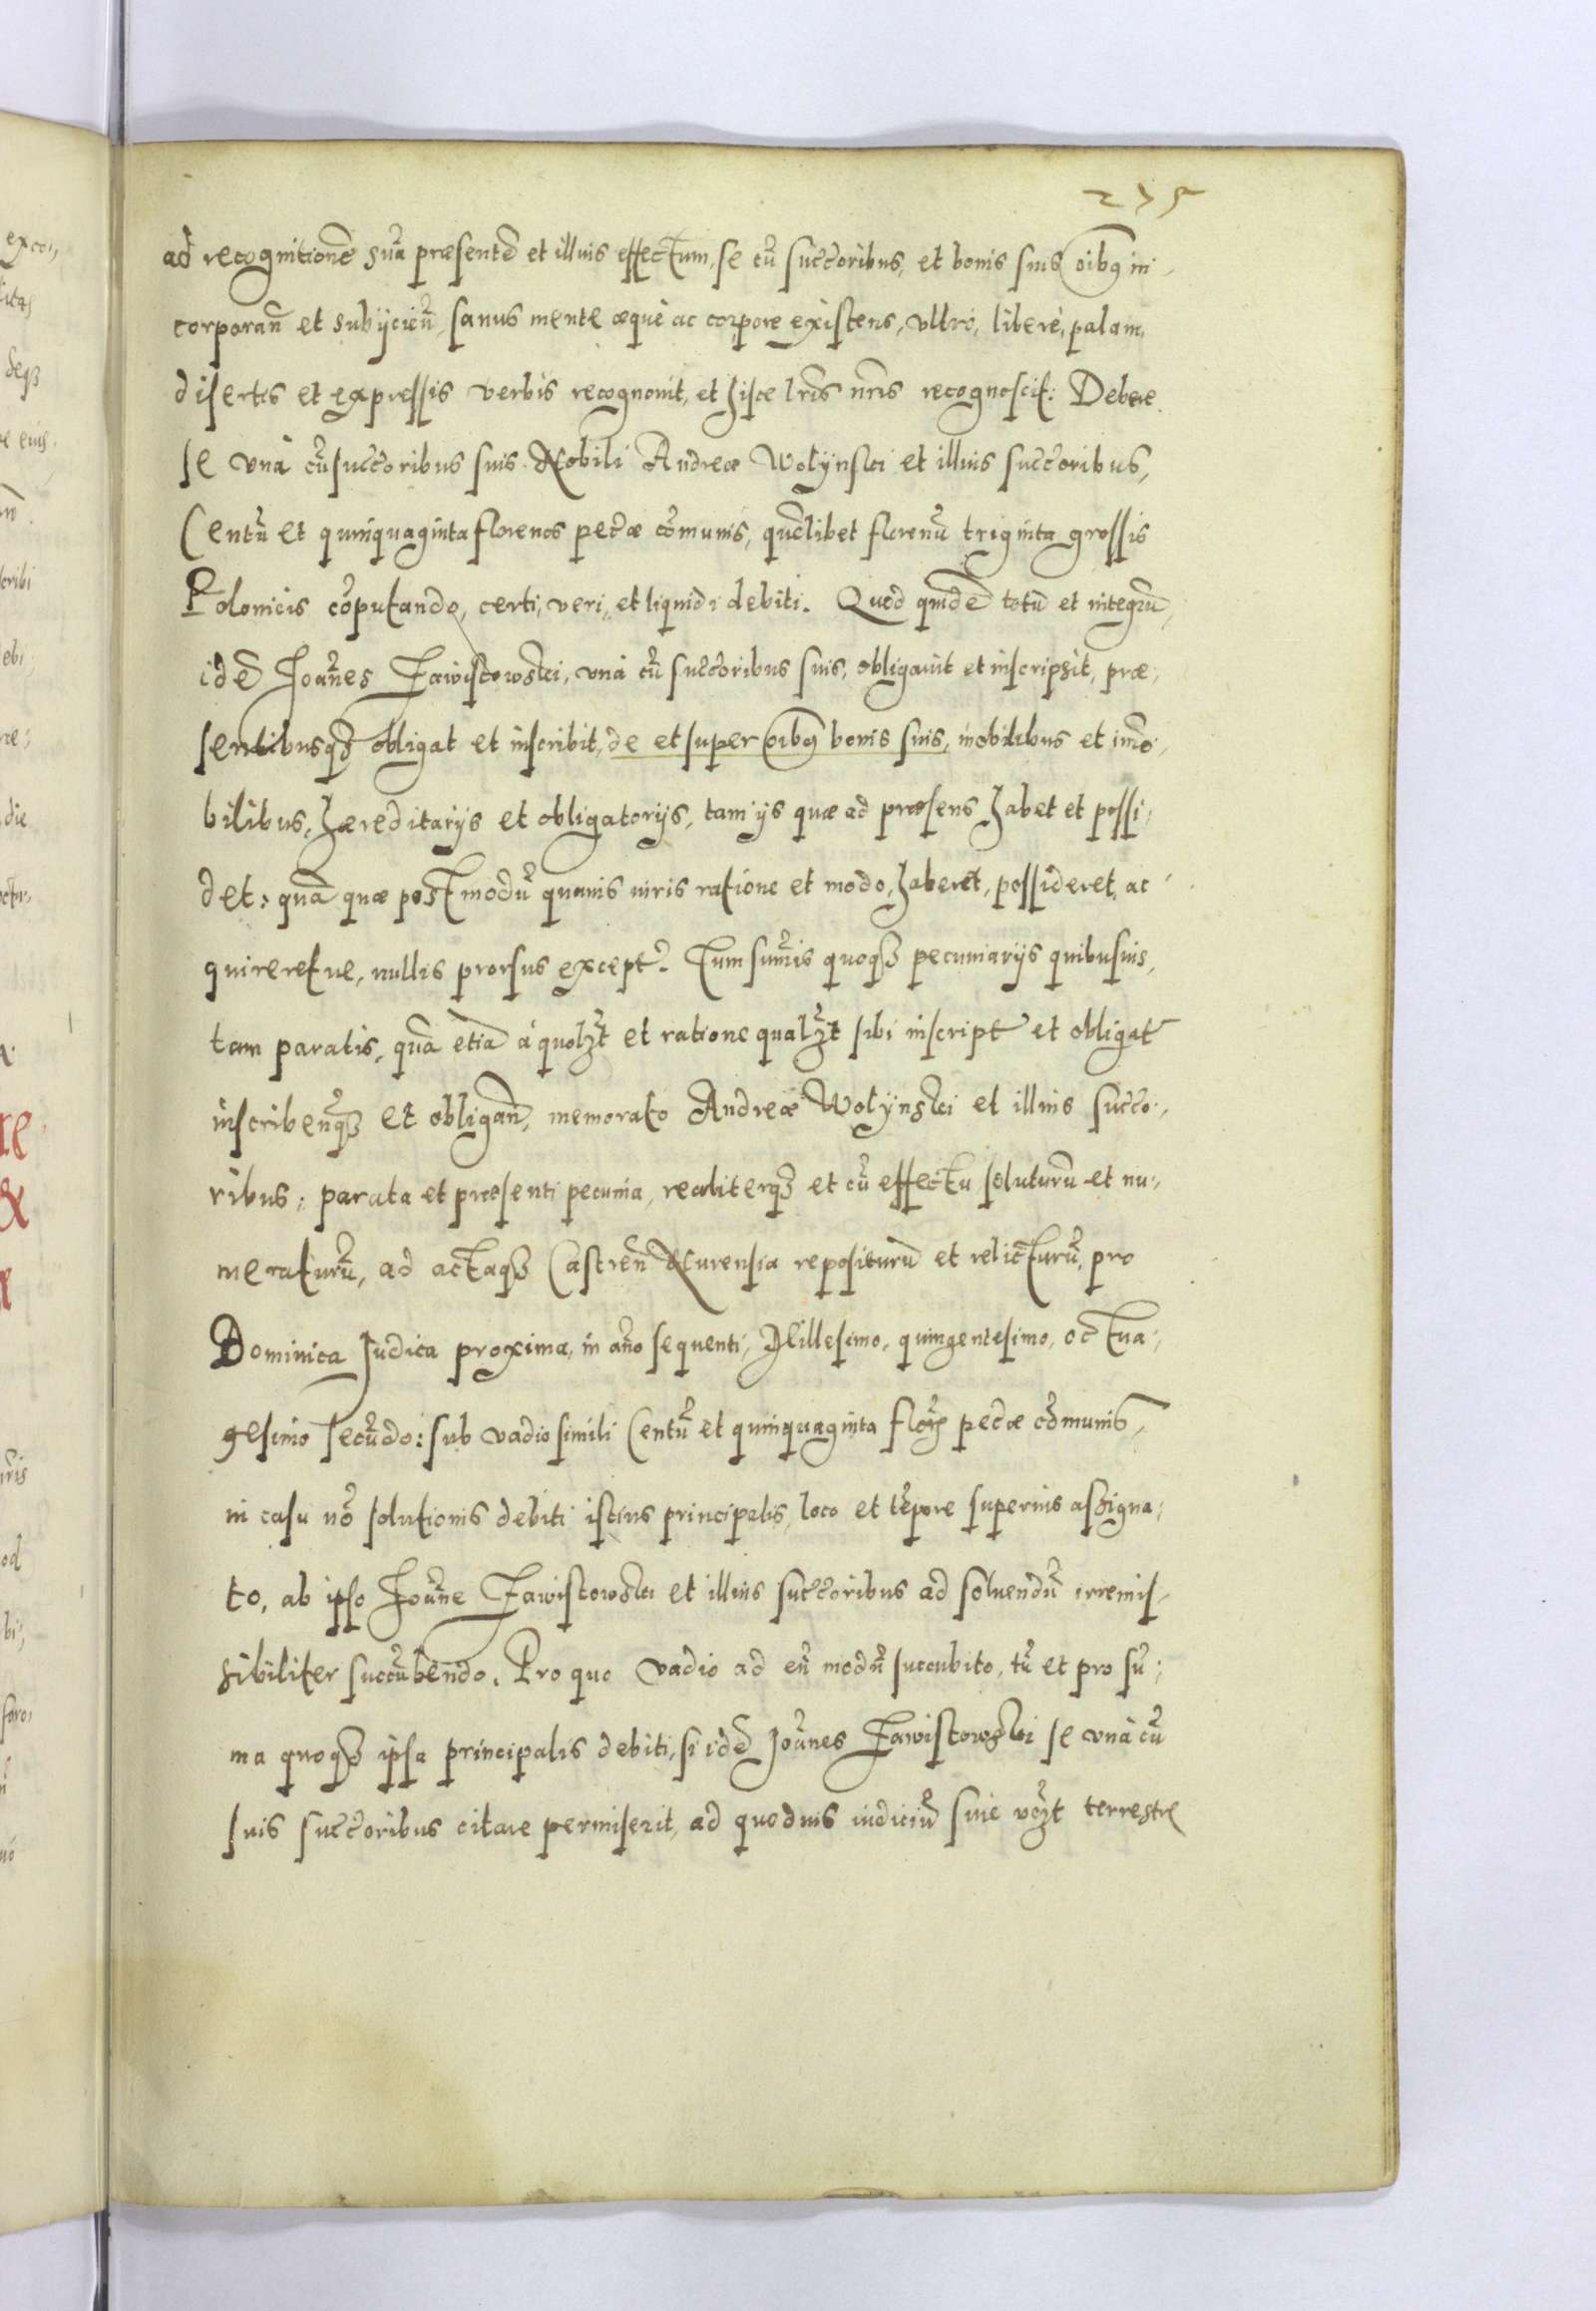 235
ad recognitionẽ suã præsentẽ et illius effectum, se cũ succoribus, et bonis suis oibꝯ in
corporañ et subijcieñ, sanus mente æquè ac corpore existens, vltrò, liberè, palam,
disertis et expressis verbis recognouit, et hisce lr̃is nr̃is recognoscit: Debere
se vnà cũ succoribus suis Nobili Andreæ Wolÿnski et illius succoribus,
Centũ et quinquaginta florenos pecĩæ cõmunis, quẽlibet florenũ triginta grossis
Polonicis cõputando, certi, veri, et liquidi debiti. Quod quidẽ totũ et integrũ,
idẽ Joañes Zawistowski, vnà cũ succoribus suis, obligauit et inscripsit, præ,
sentibusqꝫ obligat et inscribit, de et super oibꝯ bonis suis, mobilibus et im̃o,
bilibus, hæreditarijs et obligatorijs, tam ijs quæ ad præsens habet et possi,
det: quã quæ postmodũ quauis iuris ratione et modo, haberet, possideret, ac
quireretue, nullis prorsus except̃. Tum sum̃is quoqꝫ pecuniarijs quibusuis,
tam paratis, quã etiã à quolꝫt et ratione qualꝫt sibi inscript̃ et obligat̃
inscribeñqꝫ et obligañ, memorato Andreæ Wolÿnski et illius succo,
ribus; parata et præsenti pecunia, realiterqꝫ et cũ effectu soluturũ et nu,
meraturũ, ad actaqꝫ Castreñ Nurensia repositurũ et relicturũ, pro
Dominica Judica proxima, in año sequenti, Millesimo, quingentesimo, octua,
gesimo secũdo: sub vadio simili Centũ et quinquaginta floꝝ pecĩæ cõmunis,
in casu nõ solutionis debiti istius principalis, loco et tẽpore superius assigna,
to, ab ipso Joañe Zawistowski et illius succoribus ad soluendũ irremis,
sibiliter succũbendo. Pro quo vadio ad eũ modũ succubito, tũ et pro sũ,
ma quoqꝫ ipsa principalis debiti, si idẽ Joañes Zawistowski se vnà cũ
suis succoribus citare permiserit, ad quoduis iudiciũ siue vꝫt terrestre